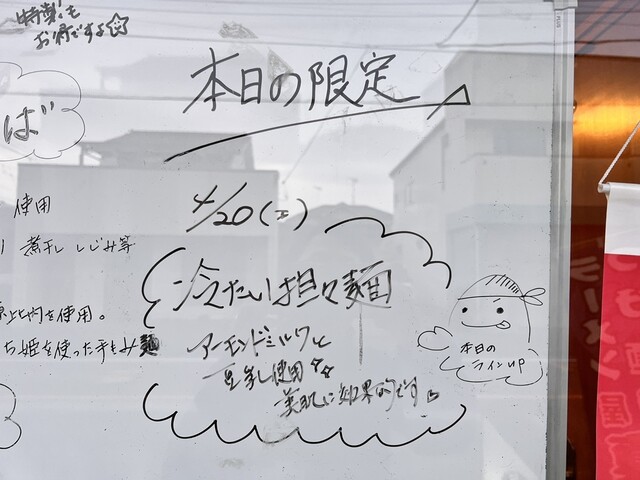 特製も
お得ですよ☆
本日の限定
ば
4/20(土)
使用
煮干 しじみ等
冷たい担々麺
アーモンドミルクと
豆乳使用
美肌に効果的です♡
内を使用。
姫を使った手もみ麺
本日の
ラインup
ラーメン
酒